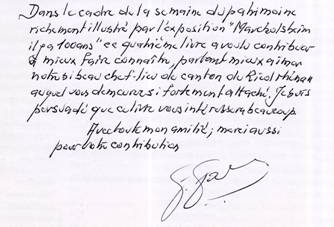 Dans le cadre de la semaine du patrimoine
richement illustré par l'exposition "Marckolsheim
il y a 100 ans" ce quatrième livre a voulu contribuer
à mieux faire connaître, partant mieux aimer
notre si beau chef-lieu de canton du Ried Rhénan
auquel vous demeurez si fortement attaché. Je suis
persuadé que ce livre vous intéressera beaucoup
Avec toute mon amitié; merci aussi
pour votre contribution